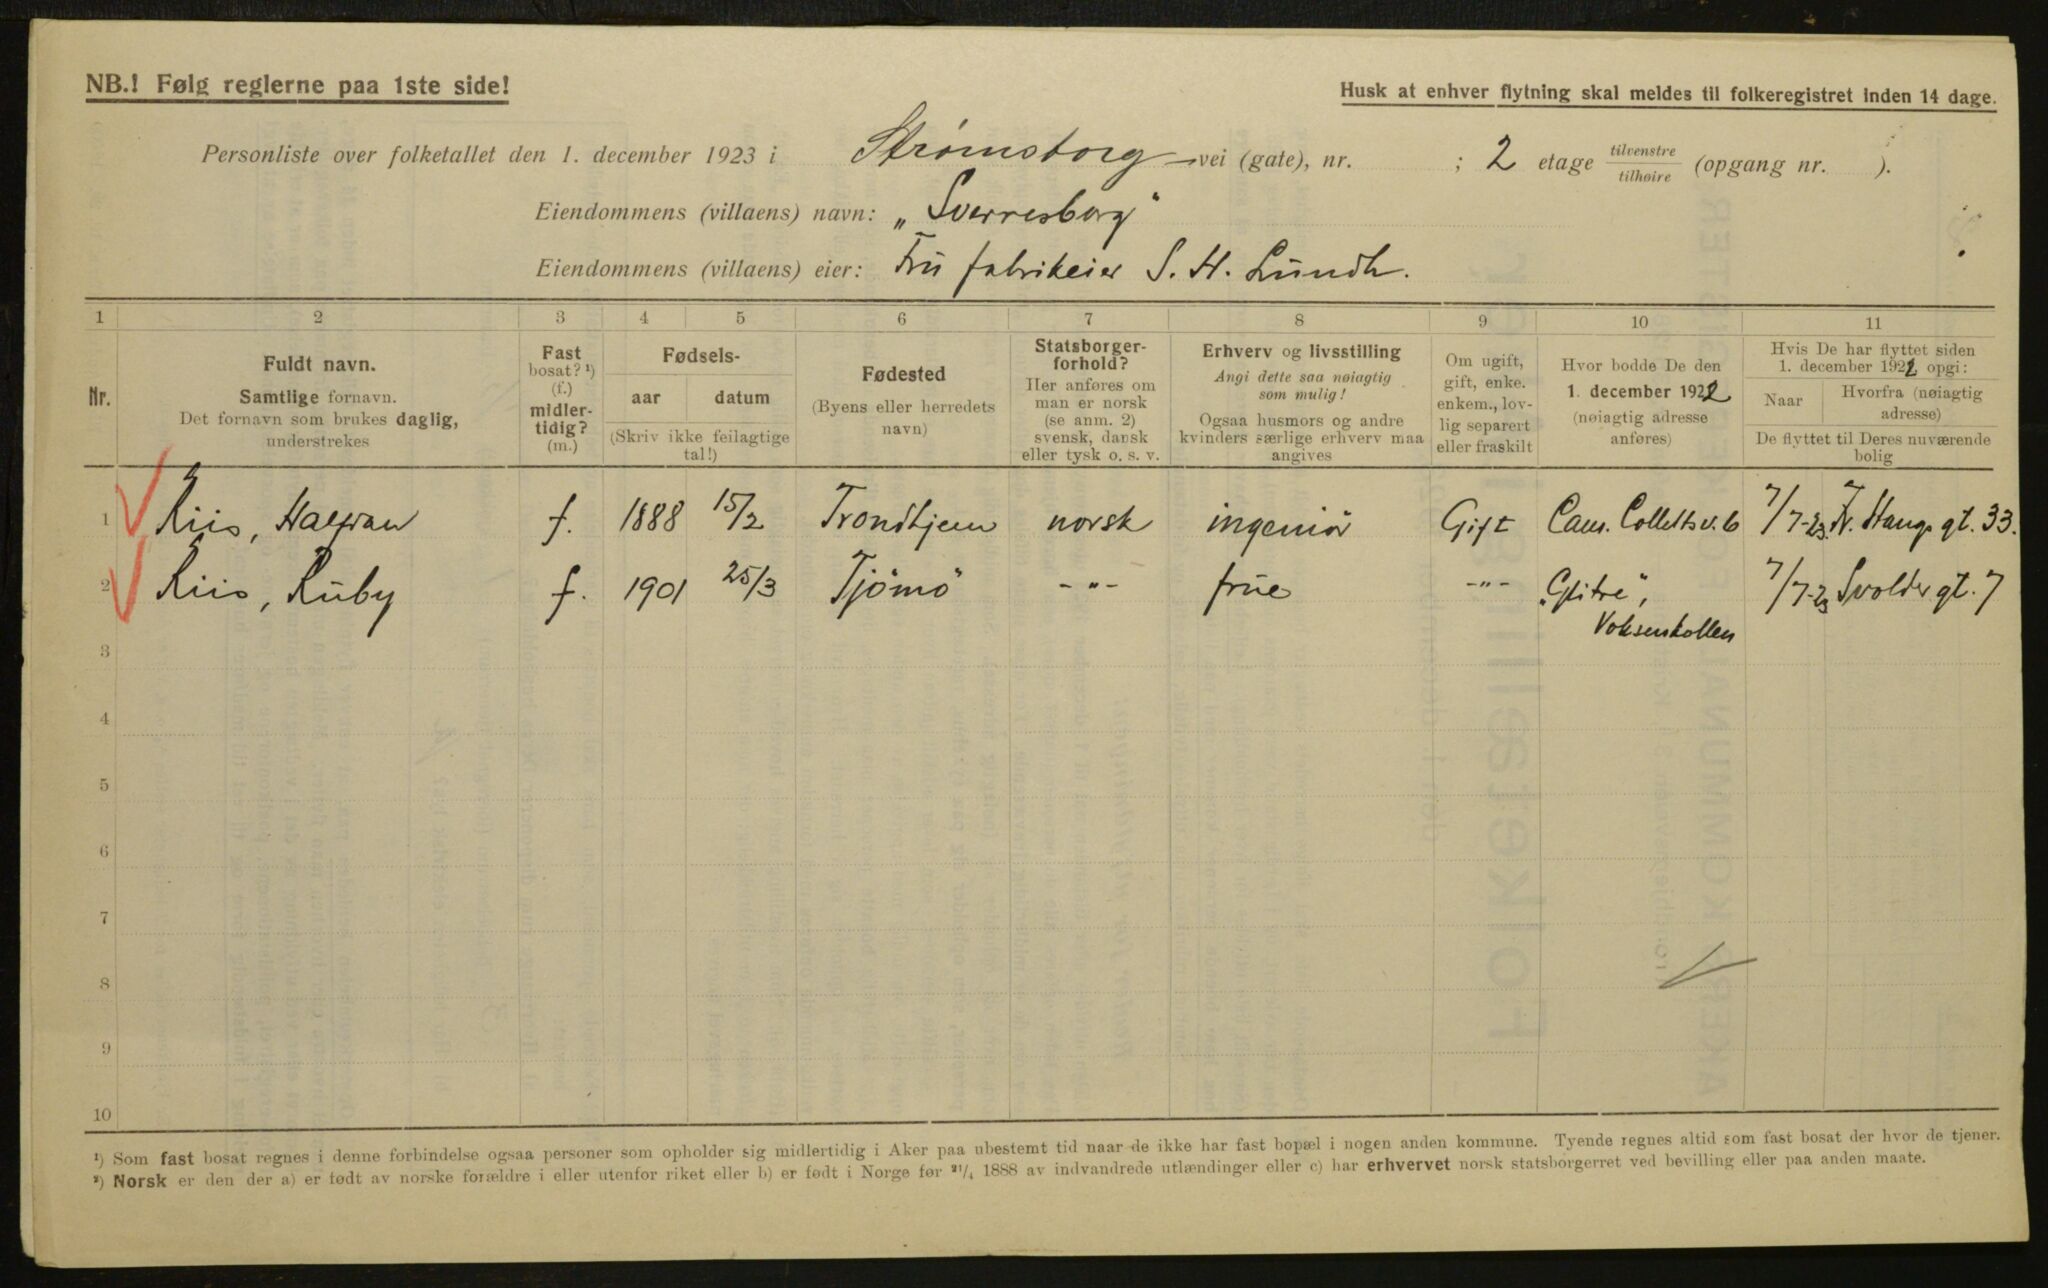 NB.! Følg reglerne paa 1ste side!
Husk at enhver flytning skal meldes til folkeregistret inden 14 dage.
Personliste over folketallet den 1. december 1923 i Strømsborg vei (gate), nr. ; 2 etage tilvenstre tilhøire (opgang nr. ).
Eiendommens (villaens) navn: „Sverresborg"
Eiendommens (villaens) eier: Fru fabrikeier S. H. Lundh.
1 2 3 4 5 6 7 8 9 10 11
Nr.
Fuldt navn.
Samtlige fornavn.
Det fornavn som brukes daglig,
understrekes
Fast
bosat? ¹)
(f.)
midler-
tidig?
(m.)
Fødsels-
aar datum
(Skriv ikke feilagtige
tal!)
Fødested
(Byens eller herredets
navn)
Statsborger-
forhold?
Her anføres om
man er norsk
(se anm. 2)
svensk, dansk
eller tysk o. s. v.
Erhverv og livsstilling
Angi dette saa nøiagtig
som mulig!
Ogsaa husmors og andre
kvinders særlige erhverv maa
angives
Om ugift,
gift, enke.
enkem., lov-
lig separert
eller fraskilt
Hvor bodde De den
1. december 1922
(nøiagtig adresse
anføres)
Hvis De har flyttet siden
1. december 1922 opgi:
Naar Hvorfra (nøiagtig
adresse)
De flyttet til Deres nuværende
bolig
1 Riis, Halfdan f. 1888 15/2 Trondhjem norsk ingeniör Gift Cam. Colletts v. 6 7/7-23. Fr. Haugs gt. 33.
2 Riis, Ruby f. 1901 25/3 Tjömö -"- frue -"- „Glitre", 7/7-23 Svolder gt. 7
Voksenkollen
3
4
5
6
7
8
9
10
¹) Som fast bosat regnes i denne forbindelse ogsaa personer som opholder sig midlertidig i Aker paa ubestemt tid naar de ikke har fast bopæl i nogen anden kommune. Tyende regnes altid som fast bosat der hvor de tjener.
²) Norsk er den der a) er født av norske forældre i eller utenfor riket eller b) er født i Norge før ²¹/₄ 1888 av indvandrede utlændinger eller c) har erhvervet norsk statsborgerret ved bevilling eller paa anden maate.